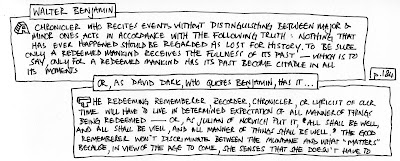 WALTER BENJAMIN
A CHRONICLER WHO RECITES EVENTS WITHOUT DISTINGUISHING BETWEEN MAJOR &
MINOR ONES ACTS IN ACCORDANCE WITH THE FOLLOWING TRUTH: NOTHING THAT
HAS EVER HAPPENED SHOULD BE REGARDED AS LOST FOR HISTORY. TO BE SURE,
ONLY A REDEEMED MANKIND RECEIVES THE FULLNESS OF ITS PAST — WHICH IS TO
SAY, ONLY FOR A REDEEMED MANKIND HAS ITS PAST BECOME CITABLE IN ALL
ITS MOMENTS
p.184
OR, AS DAVID DARK, WHO QUOTES BENJAMIN, HAS IT...
THE REDEEMING REMEMBERER, RECORDER, CHRONICLER, OR LYRICIST OF OUR
TIME WILL LIVE IN DETERMINED EXPECTATION OF ALL MANNER OF THINGS
BEING REDEEMED — OR, AS JULIAN OF NORWICH PUT IT, "ALL SHALL BE WELL,
AND ALL SHALL BE WELL, AND ALL MANNER OF THINGS SHALL BE WELL." THE GOOD
REMEMBERER WON'T DISCRIMINATE BETWEEN THE MUNDANE AND WHAT "MATTERS"
BECAUSE, IN VIEW OF THE AGE TO COME, SHE SENSES THAT SHE DOESN'T HAVE TO